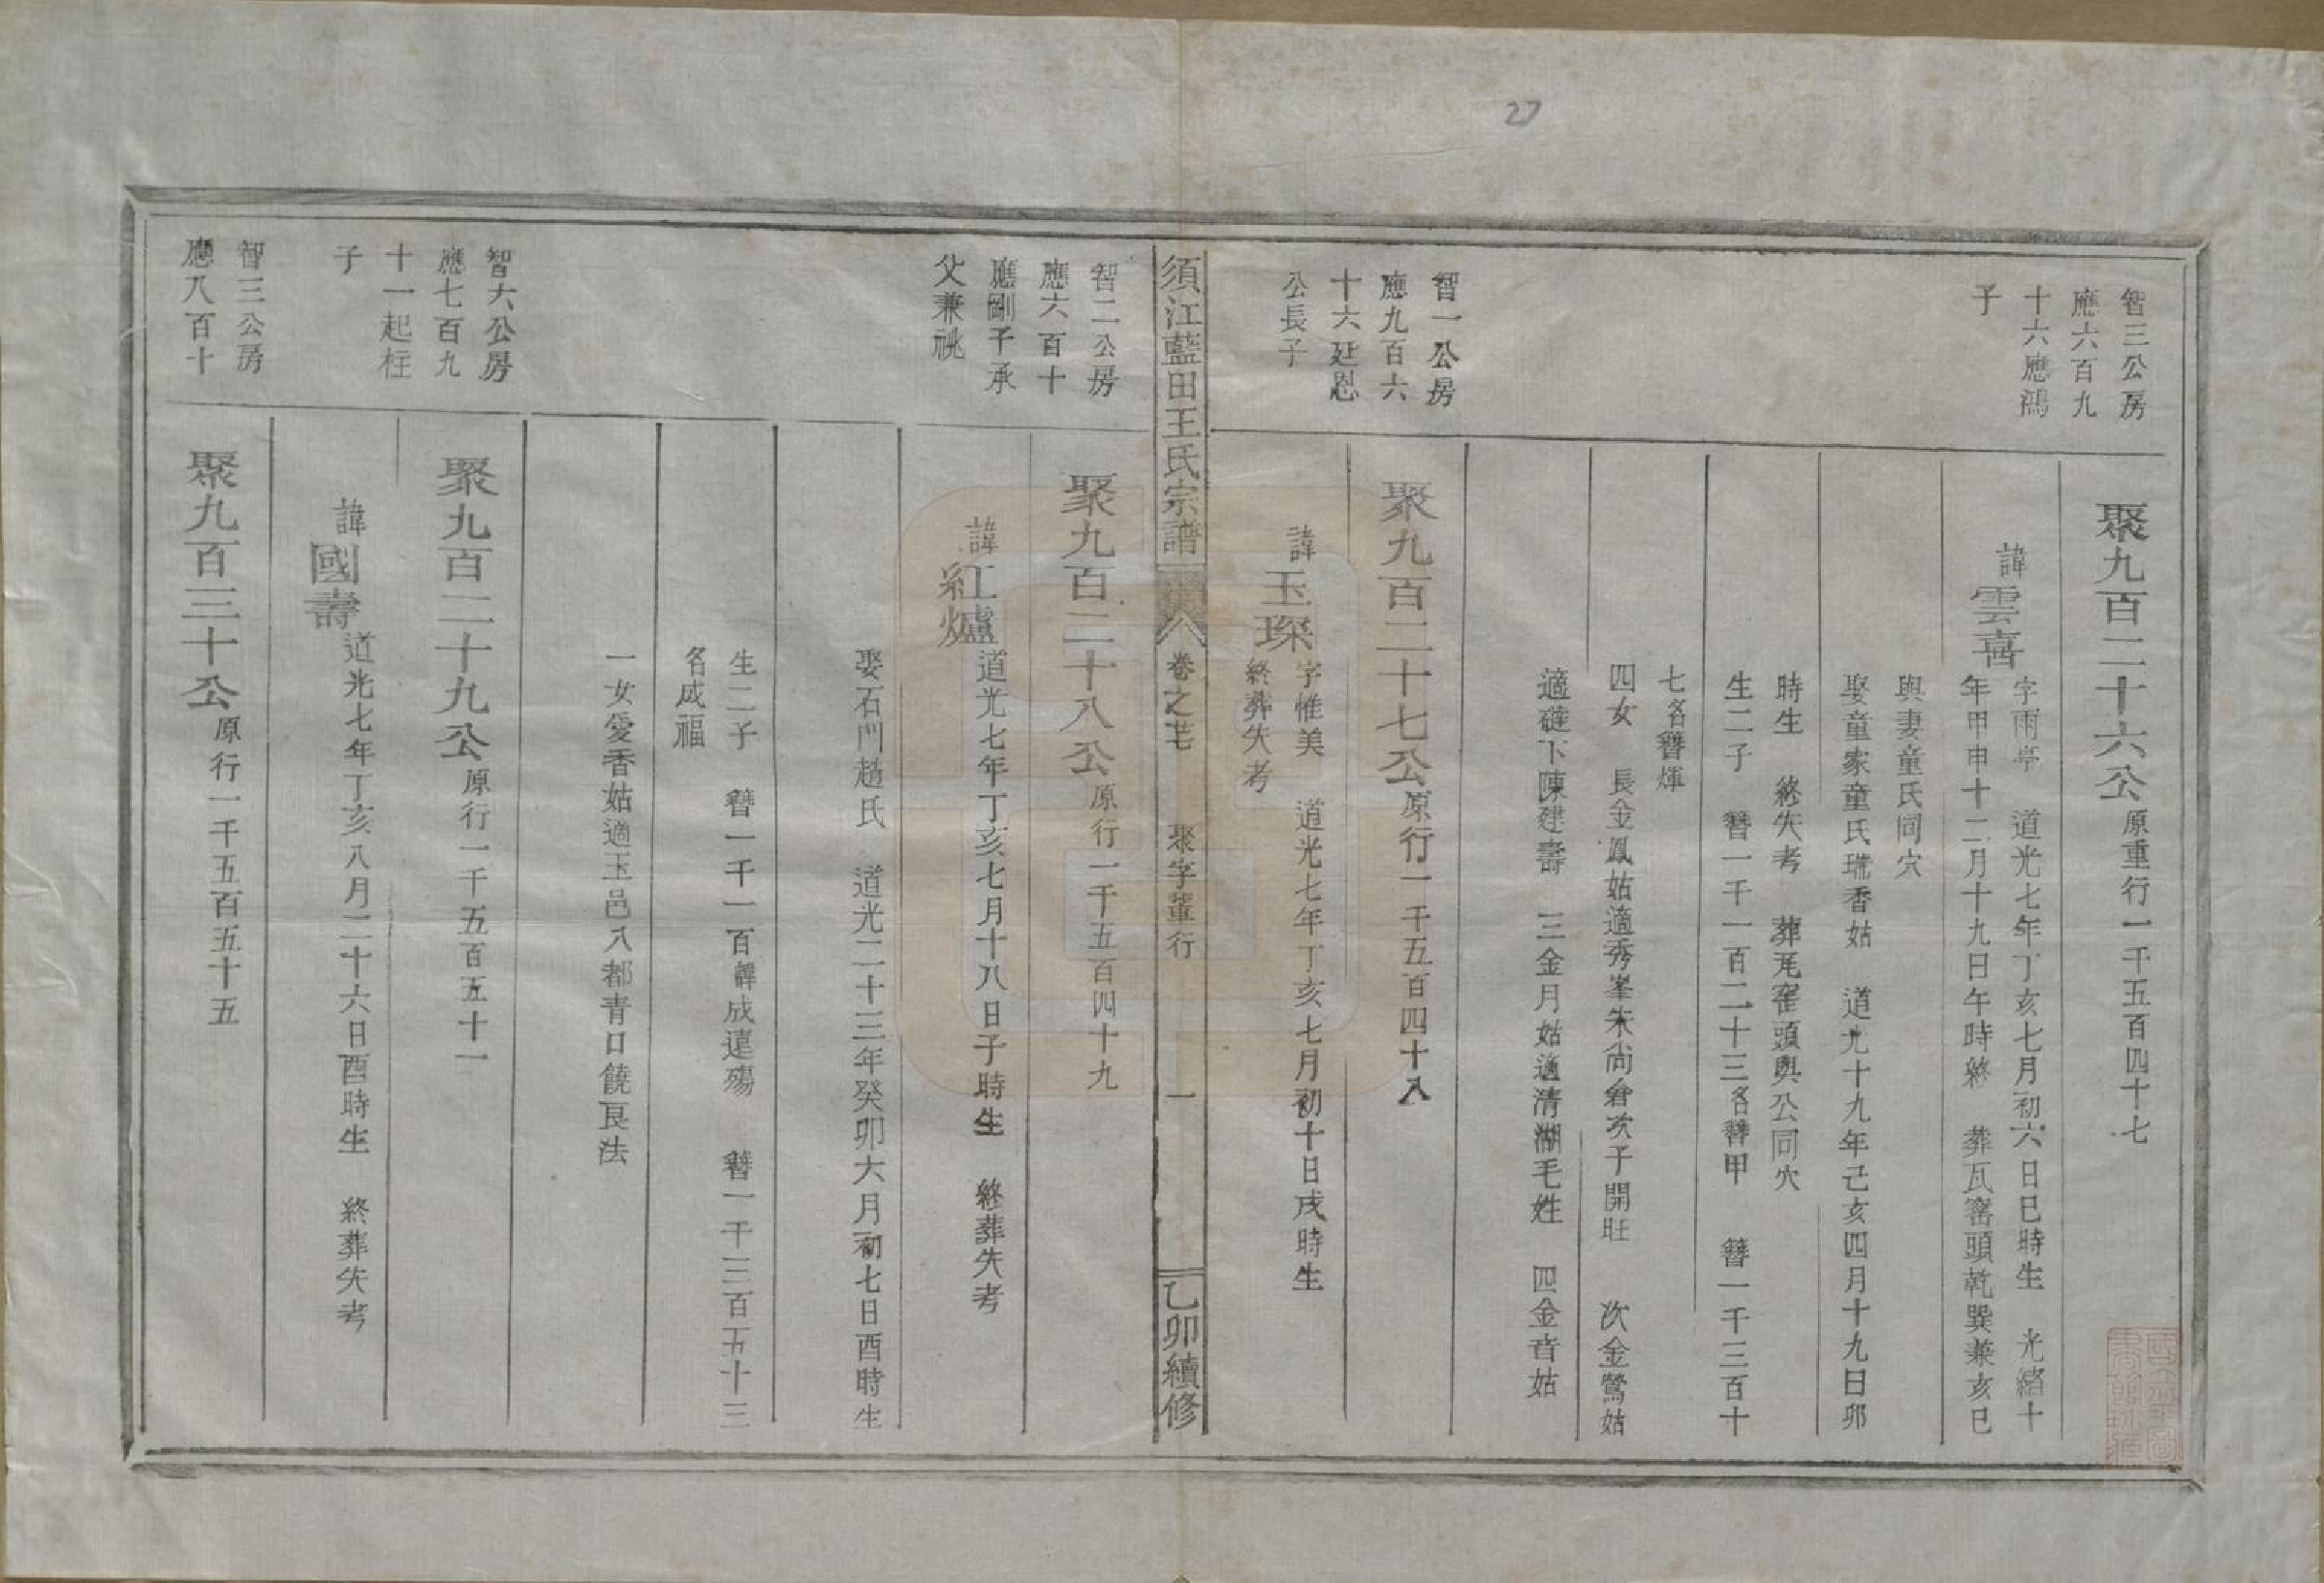 27
智三公房
應六百九
十六應鴻
子
聚九百二十六公原重行一千五百四十七
諱雲喜字雨亭 道光七年丁亥七月初六日巳時生 光緒十
年甲申十二月十九日午時終 葬瓦窰頭乾巽兼亥巳
與妻童氏同穴
娶童家童氏瑞香姑 道光十九年己亥四月十九日卯
時生 終失考 葬瓦窰頭與公同穴
生二子 朁一千一百二十三名朁甲 朁一千三百十
七名朁煇
四女 長金鳳姑適秀峯朱尚倉次子開旺 次金鶯姑
適礎下陳建壽 三金月姑適清湖毛姓 四金音姑
智一公房
應九百六
十六延恩
公長子
聚九百二十七公原行一千五百四十八
諱玉琛字惟美 道光七年丁亥七月初十日戌時生
終葬失考
須江藍田王氏宗譜 卷之芼 聚字輩行 一 乙卯續修
智二公房
應六百十
應剛子承
父兼祧
聚九百二十八公原行一千五百四十九
諱紅爐道光七年丁亥七月十八日子時生 終葬失考
娶石門趙氏 道光二十三年癸卯六月初七日酉時生
生二子 朁一千一百 成遠殤 朁一千三百五十三
名成福
一女愛香姑適玉邑八都青口饒良法
智六公房
應七百九
十一起柱
子
聚九百二十九公原行一千五百五十一
諱國壽道光七年丁亥八月二十六日酉時生 終葬失考
智三公房
應八百十
聚九百三十公原行一千五百五十五